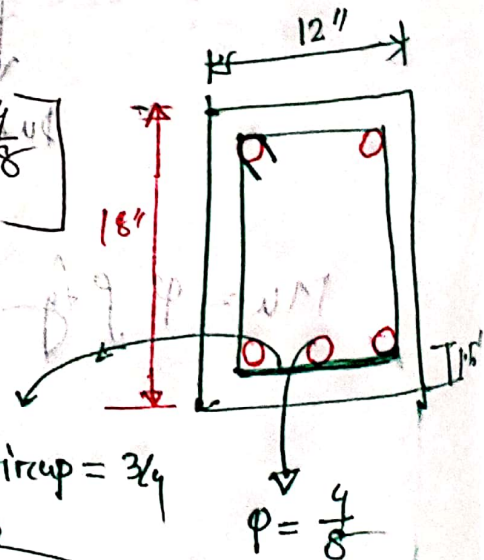 12"
4/8
18"
1.5"
ircup = 3/4
φ = 4/8